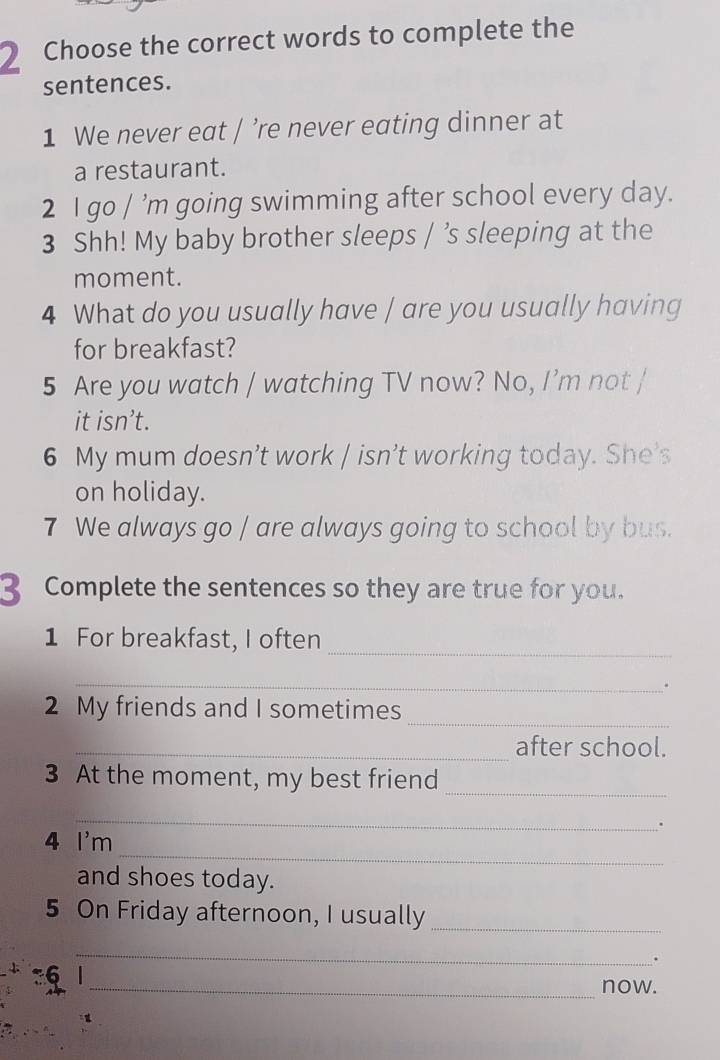 2 Choose the correct words to complete the
sentences.
1 We never eat / ’re never eating dinner at
a restaurant.
2 I go / ’m going swimming after school every day.
3 Shh! My baby brother sleeps / ’s sleeping at the
moment.
4 What do you usually have / are you usually having
for breakfast?
5 Are you watch / watching TV now? No, I’m not /
it isn’t.
6 My mum doesn’t work / isn’t working today. She’s
on holiday.
7 We always go / are always going to school by bus.
3 Complete the sentences so they are true for you.
1 For breakfast, I often
.
2 My friends and I sometimes
after school.
3 At the moment, my best friend
.
4 I’m
and shoes today.
5 On Friday afternoon, I usually
.
6 I now.